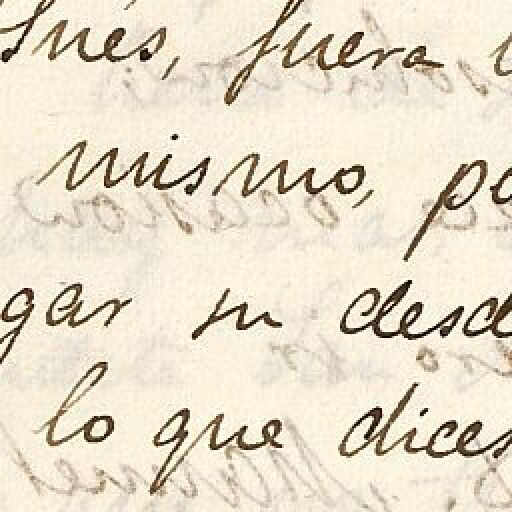 fuera
mismo,
gar su desd
lo que dices